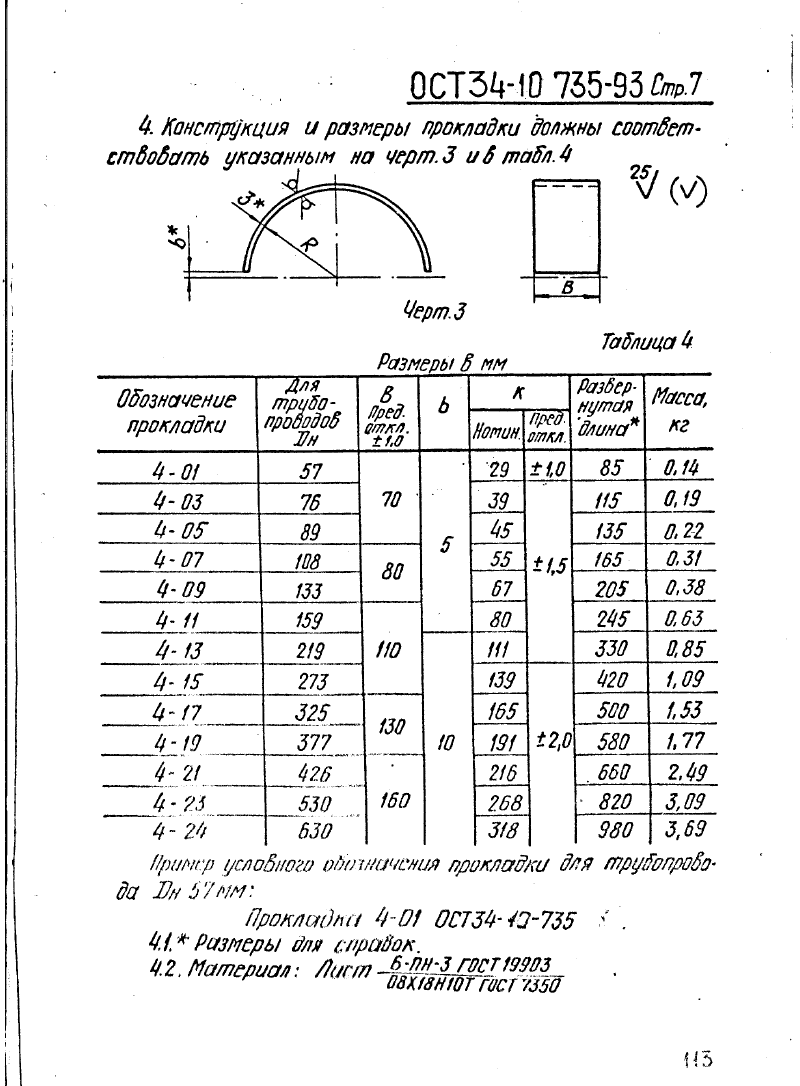 ОСТ34-10 735-93 Стр.7
4. Конструкция и размеры прокладки должны соответ-
ствовать указанным на черт.3 и в табл.4
25 (√)
3*
b*
R
B
Черт.3
Таблица 4
Размеры в мм
Обозначение прокладки | Для трубопроводов Dн | B Пред. откл. ±1,0 | b | R Номин. | Пред. откл. | Развернутая длина* | Масса, кг
4-01 57 70 5 29 ±1,0 85 0,14
4-03 76 39 ±1,5 115 0,19
4-05 89 45 135 0,22
4-07 108 80 55 165 0,31
4-09 133 67 205 0,38
4-11 159 110 80 245 0,63
4-13 219 10 111 330 0,85
4-15 273 139 ±2,0 420 1,09
4-17 325 130 165 500 1,53
4-19 377 191 580 1,77
4-21 426 160 216 660 2,49
4-23 530 268 820 3,09
4-24 630 318 980 3,69
Пример условного обозначения прокладки для трубопрово-
да Dн 57мм:
Прокладка 4-01 ОСТ34-10-735
4.1.* Размеры для справок.
4.2. Материал: Лист 6-ПН-3 ГОСТ19903
08Х18Н10Т ГОСТ 7350
113